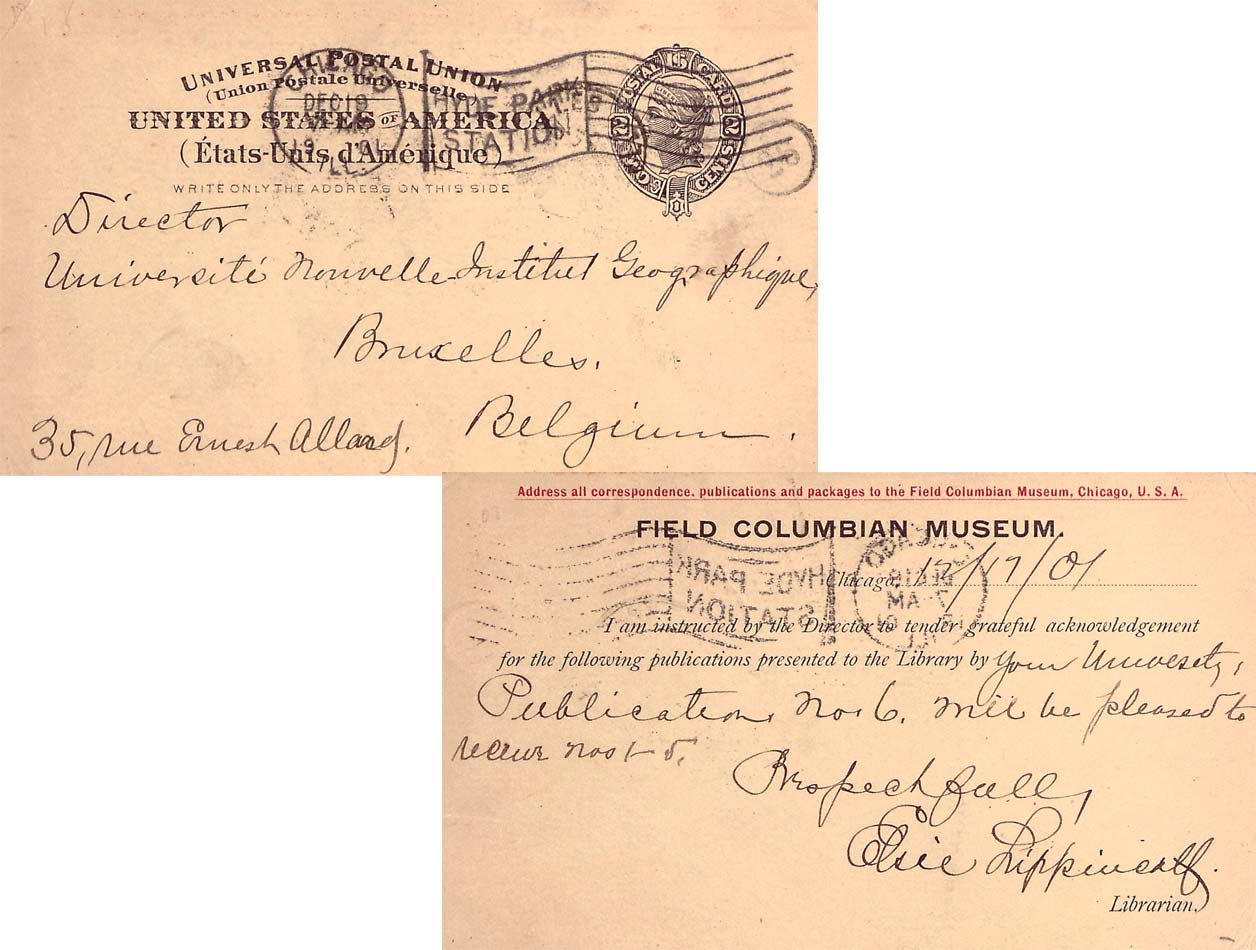 UNIVERSAL POSTAL UNION
(Union Postale Universelle)
UNITED STATES OF AMERICA
(États-Unis d'Amérique)
WRITE ONLY THE ADDRESS ON THIS SIDE
CHICAGO
DEC 19
ILL.
HYDE PARK
STATION
POSTAL CARD
TWO CENTS
Director
Université Nouvelle-Institut Geographique,
Bruxelles.
Belgium.
35, rue Ernest Allard.
Address all correspondence, publications and packages to the Field Columbian Museum, Chicago, U. S. A.
FIELD COLUMBIAN MUSEUM.
Chicago, 12/17/01
HYDE PARK
STATION
I am instructed by the Director to tender grateful acknowledgement
for the following publications presented to the Library by your University,
Publication, No. 6. Will be pleased to
receive nos 1-5.
Respectfully,
Elsie Lippincott.
Librarian.